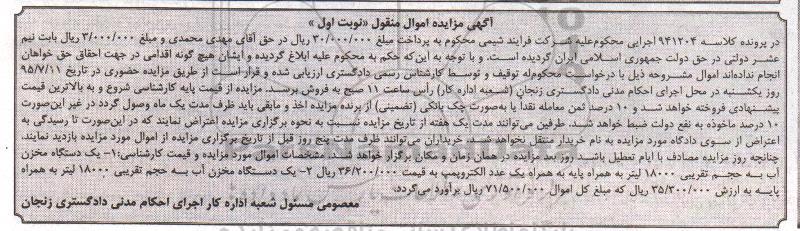 آگهی مزایده اموال منقول «نوبت اول»
در پرونده کلاسه ۹۴۱۲۰۴ اجرایی محکوم‌علیه شرکت فرایند شیمی محکوم به پرداخت مبلغ ۳۰/۰۰۰/۰۰۰ ریال در حق آقای مهدی محمدی و مبلغ ۳/۰۰۰/۰۰۰ ریال بابت نیم
عشر دولتی در حق دولت جمهوری اسلامی ایران گردیده است. و با توجه به این‌که حکم به محکوم علیه ابلاغ گردیده و ایشان هیچ گونه اقدامی در جهت احقاق حق خواهان
انجام نداده‌اند اموال مشروحه ذیل با درخواست محکوم‌له توقیف و توسط کارشناس رسمی دادگستری ارزیابی شده و قرار است از طریق مزایده حضوری در تاریخ ۹۵/۷/۱۱
روز یکشنبه در محل اجرای احکام مدنی دادگستری زنجان (شعبه اداره کار) رأس ساعت ۱۱ صبح به فروش برسد. مزایده از قیمت پایه کارشناسی شروع و به بالاترین قیمت
پیشنهادی فروخته خواهد شد و ۱۰ درصد ثمن معامله نقدا یا به‌صورت چک بانکی (تضمینی) از برنده مزایده اخذ و مابقی باید ظرف مدت یک ماه وصول گردد در غیر این‌صورت
۱۰ درصد ماخوذه به نفع دولت ضبط خواهد شد. طرفین می‌توانند مدت یک هفته از تاریخ مزایده نسبت به نحوه برگزاری مزایده اعتراض نمایند که در این‌صورت تا رسیدگی به
اعتراض از سوی دادگاه مورد مزایده به نام خریدار منتقل نخواهد شد. خریداران می‌توانند ظرف مدت پنج روز قبل از تاریخ برگزاری مزایده از اموال مورد مزایده بازدید نمایند.
چنانچه روز مزایده مصادف با ایام تعطیل باشد روز بعد مزایده در همان زمان و مکان برگزار خواهد شد. مشخصات اموال مورد مزایده و قیمت کارشناسی:۱- یک دستگاه مخزن
آب به حجم تقریبی ۱۸۰۰۰ لیتر به همراه پایه به همراه یک عدد الکتروپمپ به قیمت ۳۶/۲۰۰/۰۰۰ ریال ۲- یک دستگاه مخزن آب به حجم تقریبی ۱۸۰۰۰ لیتر به همراه
پایه به ارزش ۳۵/۳۰۰/۰۰۰ ریال که مبلغ کل اموال ۷۱/۵۰۰/۰۰۰ ریال برآورد می‌گردد.
معصومی مسئول شعبه اداره کار اجرای احکام مدنی دادگستری زنجان